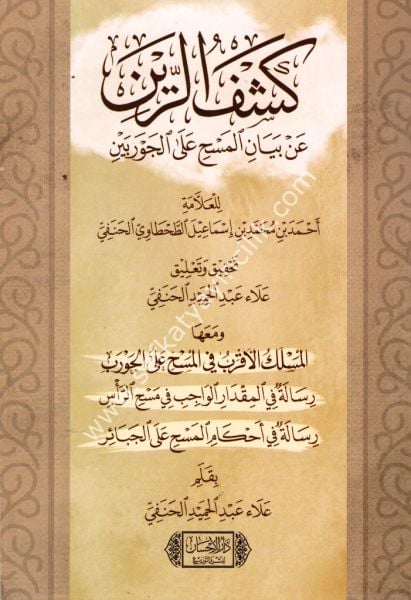 كَشْفُ الرَّيْنِ
عَنْ بَيَانِ الْمَسْحِ عَلَى الْجَوْرَبَيْنِ
لِلْعَلَّامَةِ
أَحْمَدَ بْنِ مُحَمَّدِ بْنِ إِسْمَاعِيلَ الطَّحْطَاوِيِّ الْحَنَفِيِّ
تَحْقِيق وَتَعْلِيق
عَلَاء عَبْدِ الْحَمِيدِ الْحَنَفِيّ
وَمَعَهَا
الْمَسْلَكُ الْأَقْرَبُ فِي الْمَسْحِ عَلَى الْجَوْرَبِ
رِسَالَةٌ فِي الْمِقْدَارِ الْوَاجِبِ فِي مَسْحِ الرَّأْسِ
رِسَالَةٌ فِي أَحْكَامِ الْمَسْحِ عَلَى الْجَبَائِرِ
بِقَلَمِ
عَلَاء عَبْدِ الْحَمِيدِ الْحَنَفِيّ
دَارُ الْإِحْسَانِ
لِلنَّشْرِ وَالتَّوْزِيعِ